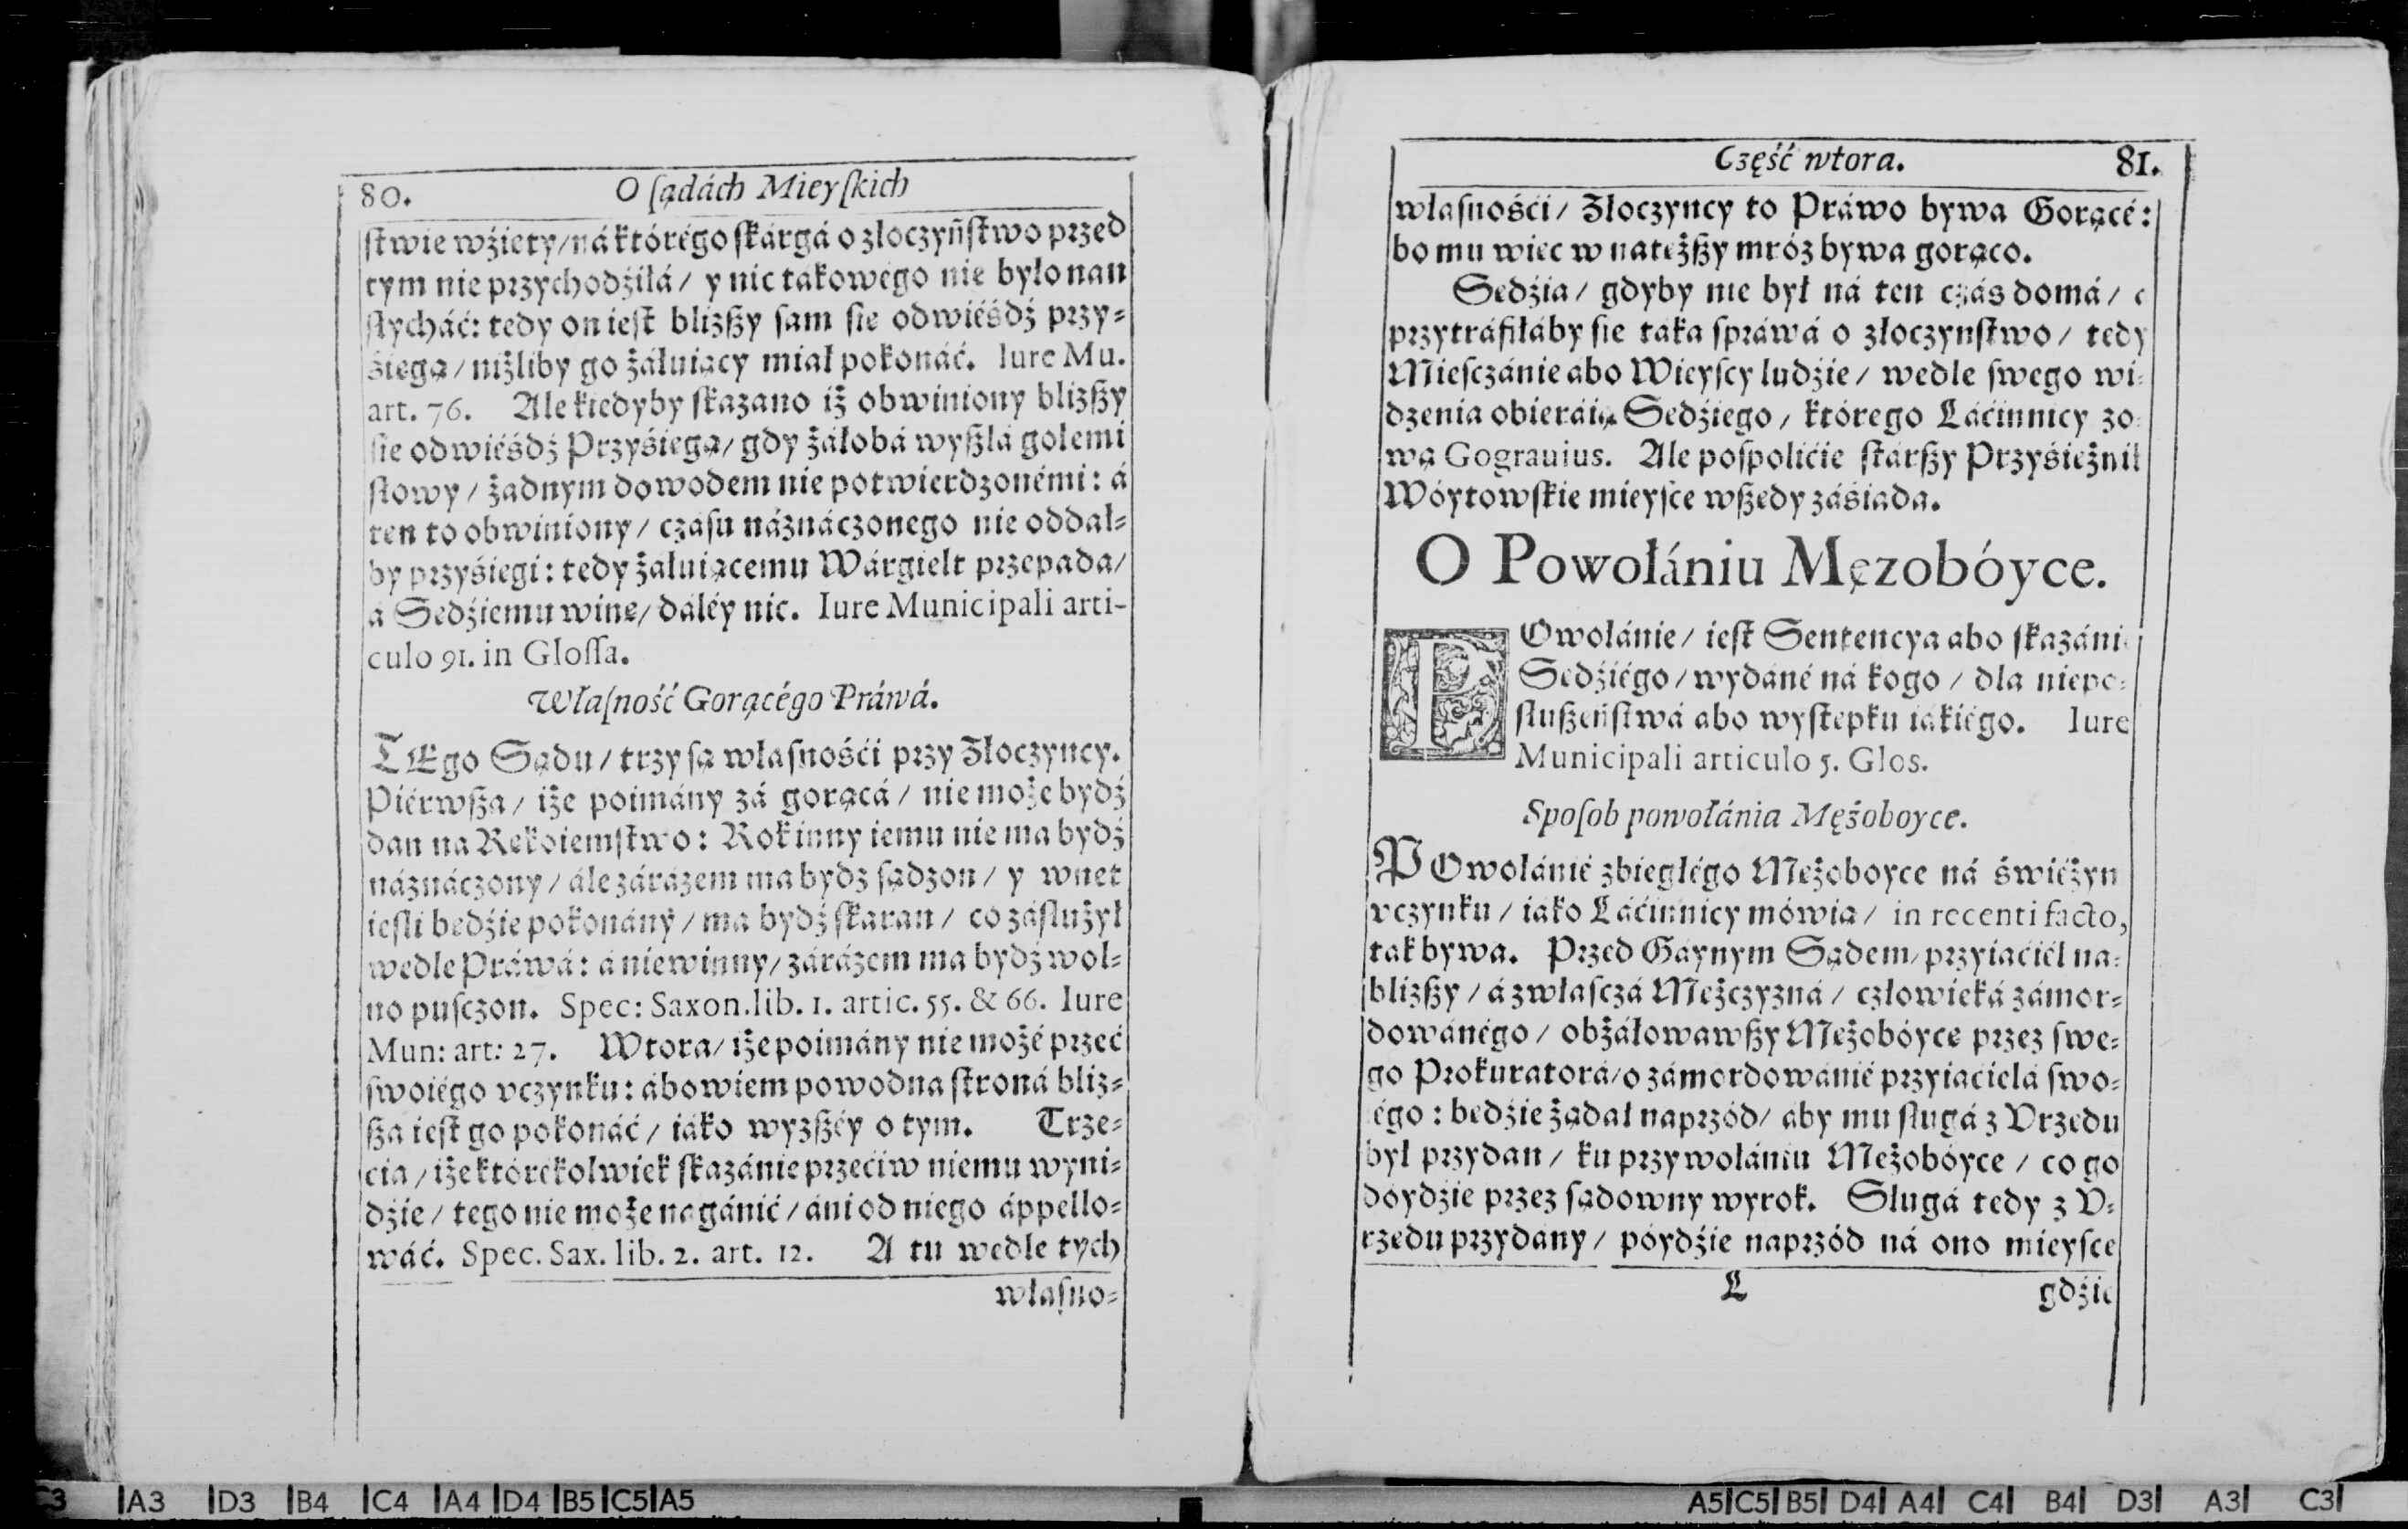 80. O ſądách Mieyſkich
ſtwie wźięty/ná którégo ſkárgá o złoczyńſtwo przed
tym nie przychodźiłá/ y nic tákowégo nie było nań
ſłycháć: tedy on ieſt bliżßy ſam ſię odwiéśdź przy⸗
śięgą/ niżliby go żáłuiący miał pokonáć. Iure Mu.
art. 76. Ale kiedyby ſkazano iż obwiniony bliżßy
ſię odwiéśdź Przyśięgą/ gdy żáłobá wyßłá gołemi
ſłowy/ żadnym dowodem nie potwierdzonémi: á
ten to obwiniony/ czáſu náznáczonego nie oddał⸗
by przyśięgi: tedy żáłuiącemu Wárgielt przepada/
á Sędźiemu winę/ dáléy nic. Iure Municipali arti-
culo 91. in Gloſſa.
Właſność Gorącégo Práwá.
TEgo Sądu/ trzy ſą właſnośći przy Złoczyńcy.
Piérwßa/ iże poimány zá gorącá/ nie może bydź
dan na Rękoiemſtwo: Rok inny iemu nie ma bydź
náznáczony/ ále zárázem ma bydź ſądzon/ y wnet
ieſli będźie pokonány/ ma bydź ſkaran/ co záſłużył
wedle Práwá: á niewinny/ zárázem ma bydź wol⸗
no puſczon. Spec: Saxon. lib. 1. artic. 55. & 66. Iure
Mun: art: 27. Wtora/ iże poimány nie możé przeć
ſwoiégo vczynku: ábowiem powodna ſtroná bliż⸗
ßa ieſt go pokonáć/ iáko wyzßéy o tym. Trze⸗
cia/ iże którékolwiek ſkazánie przećiw niemu wyni⸗
dźie/ tego nie może nagánić/ áni od niego áppello⸗
wáć. Spec. Sax. lib. 2. art. 12. A tu wedle tych
właſno⸗
Część wtora. 81.
właſnośći/ Złoczyńcy to Práwo bywa Gorącé:
bo mu więc w natęższy mróz bywa gorąco.
Sędźia/ gdyby nie był ná ten czás domá/
przytráfiłáby ſię táka ſpráwá o złoczyńſtwo/ tedy
Mieſczánie abo Wieyſcy ludźie/ wedle ſwego wi⸗
dzenia obieráią Sędźiego/ którego Láćinnicy zo⸗
wą Gograuius. Ale poſpolićie ſtárßy Przyśiężnik
Wóytowſkie mieyſce wßędy záśiada.
O Powołániu Męzobóyce.
POwołánie/ ieſt Sentencya abo ſkazáni
Sędźiégo/ wydáné ná kogo/ dla niepo⸗
ſłußeńſtwá abo wyſtępku iákiégo. Iure
Municipali articulo 5. Glos.
Spoſob powołánia Mężoboyce.
POwołánié zbiegłégo Mężoboyce ná świéżyn
vczynku/ iáko Láćinnicy mówią/ in recenti facto,
ták bywa. Przed Gáynym Sądem/ przyiaćiél na⸗
bliżßy/ á zwłaſczá Mężczyzná/ człowieká zámor⸗
dowánégo/ obżáłowawßy Mężobóyce przez ſwe⸗
go Prokuratorá/o zámordowánié przyiaćielá ſwo⸗
iégo: będźie żądał naprzód/ áby mu ſługá z Vrzędu
był przydan/ ku przywołániu Mężobóyce/ co go
dóydźie przez ſądowny wyrok. Sługá tedy z V⸗
rzędu przydány/ póydźie naprzód ná ono mieyſce
L gdźie
A3 D3 B4 C4 A4 D4 B5 C5 A5
A5 C5 B5 D4 A4 C4 B4 D3 A3 C3